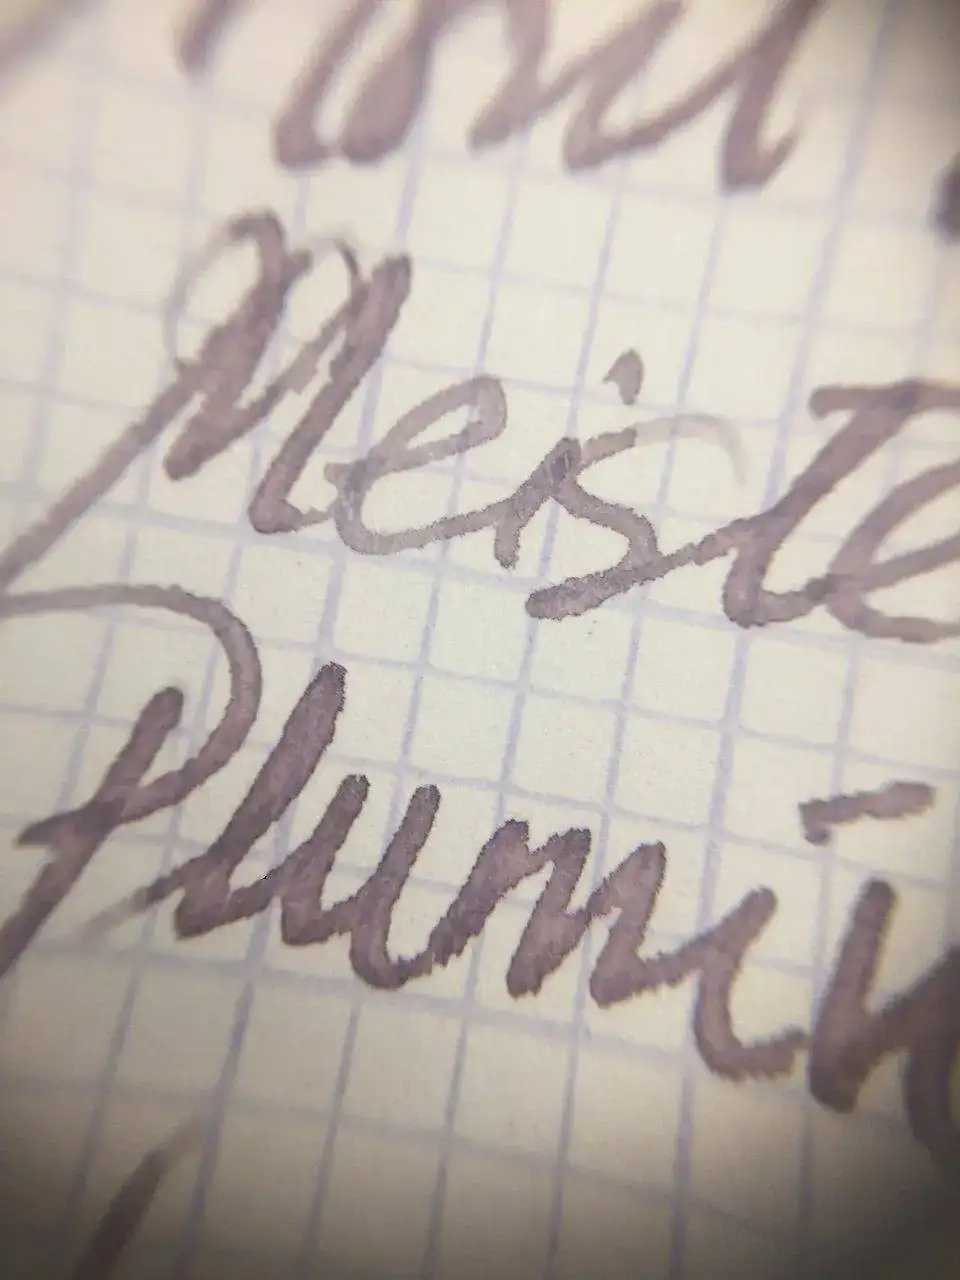 Meiste
Plumin